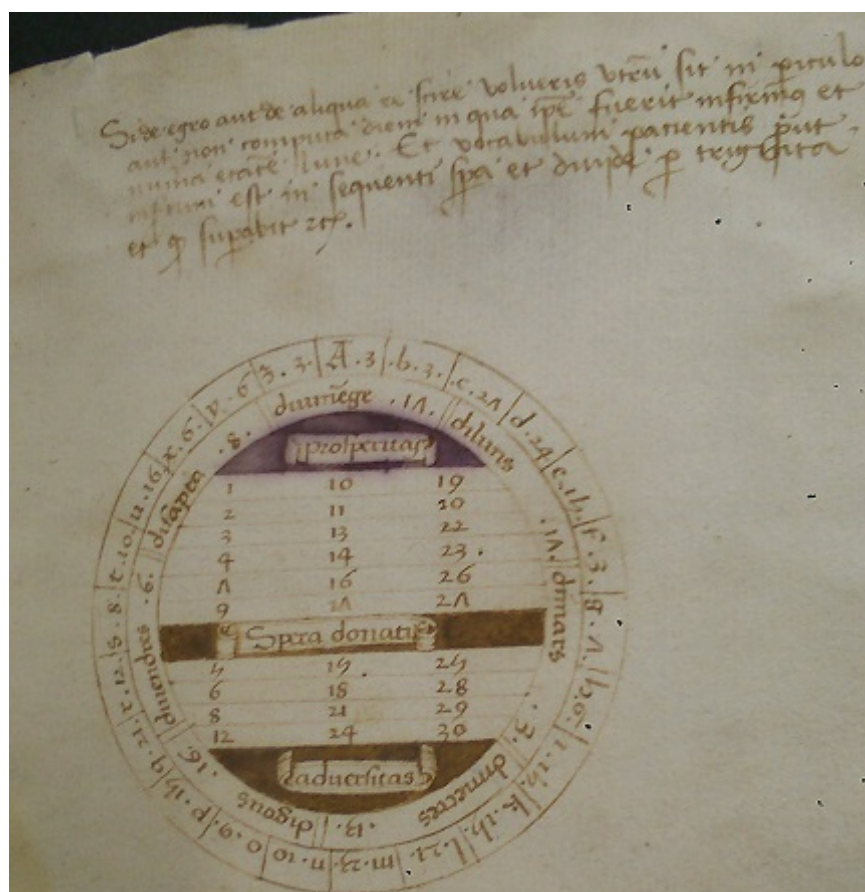 Si de egro aut de aliqua re scire volueris vtrũ sit in p̱iculo
aut non computa diem in qua ip̃e fuerit infirmꝰ et
etatẽ lune. Et vocabulum pacientis p̃ut
est in sequenti sp̃a et diuide p̱ triginta
et sup̱abit
A . 3
. b . 3 .
. c . 27
d . 24
e . 15 .
f . 3 .
g . 7 .
h . 6 .
i . 15 .
k . 15 .
l . 21 .
m . 23 .
n . 10
o . 9 .
p . 15
q . 21 .
r . 12 .
s . 8 .
t . 10 .
u . 16
x . 6 .
y . 6
z . 3 .
diumẽge . 17 .
diluns . 17 .
dimars . 3 .
dimercres . 13 .
digous . 16 .
diuendres . 6 .
disapta . 8 .
prosperitas
1 10 19
2 11 20
3 13 22
4 14 23 .
7 16 26
9 17 27
Spera donati
5 15 . 25
6 18 28
8 21 29
12 24 30
aduersitas